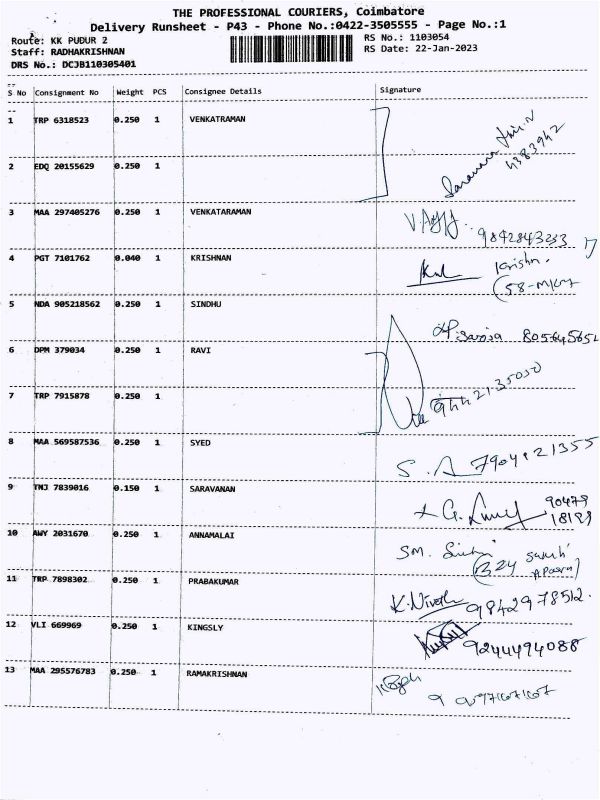 THE PROFESSIONAL COURIERS, Coimbatore
Delivery Runsheet - P43 - Phone No.:0422-3505555 - Page No.:1
Route: KK PUDUR 2
RS No.: 1103054
Staff: RADHAKRISHNAN
RS Date: 22-Jan-2023
DRS No.: DCJB110305401
S No Consignment No Weight PCS Consignee Details Signature
1 TRP 6318523 0.250 1 VENKATRAMAN
4383942
2 EDQ 20155629 0.250 1
3 MAA 297405276 0.250 1 VENKATARAMAN
9842843233
4 PGT 7101762 0.040 1 KRISHNAN Krishn.
5 NDA 905218562 0.250 1 SINDHU
6 DPM 379034 0.250 1 RAVI
7 TRP 7915878 0.250 1
8 MAA 569587536 0.250 1 SYED S. A
9 TNJ 7839016 0.150 1 SARAVANAN 90479
18189
10 AWY 2031670 0.250 1 ANNAMALAI SM.
11 TRP 7898302 0.250 1 PRABAKUMAR K. 9842978512.
12 VLI 669969 0.250 1 KINGSLY 9244494088
13 MAA 295576783 0.250 1 RAMAKRISHNAN